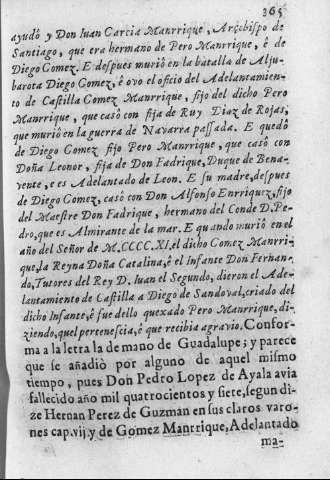 365
ayudò y Don Iuan Garcia Manrrique, Arçobispo de
Santiago, que era hermano de Pero Manrrique, è de
Diego Gomez. E despues murió en la batalla de Alju-
barota Diego Gomez, è ovo el oficio del Adelantamien-
to de Castilla Gomez Manrrique, fijo del dicho Pero
Manrrique, que casò con fija de Ruy Diaz de Rojas,
que murió en la guerra de Navarra passada. E quedò
de Diego Gomez fijo Pero Manrrique, que casò con
Doña Leonor, fija de Don Fadrique, Duque de Bena-
vente, e es Adelantado de Leon. E su madre, despues
de Diego Gomez, casò con Don Alfonso Enrriquez, fijo
del Maestre Don Fadrique, hermano del Conde D. Pe-
dro, que es Almirante de la mar. E quando murió en el
año del Señor de M.CCCC.XI. el dicho Gomez Manrri-
que, la Reyna Doña Catalina, è el Infante Don Fernan-
do, Tutores del Rey D. Iuan el Segundo, dieron el Ade-
lantamiento de Castilla a Diego de Sandoval, criado del
dicho Infante, è fue dello quexado Pero Manrrique, di-
ziendo, quel pertenescia, è que recibia agravio. Confor-
ma a la letra la de mano de Guadalupe; y parece
que se añadiò por alguno de aquel mismo
tiempo, pues Don Pedro Lopez de Ayala avia
fallecido año mil quatrocientos y siete, segun di-
ze Hernan Perez de Guzman en sus claros varo-
nes cap. vij. y de Gomez Manrrique, Adelantado
ma-